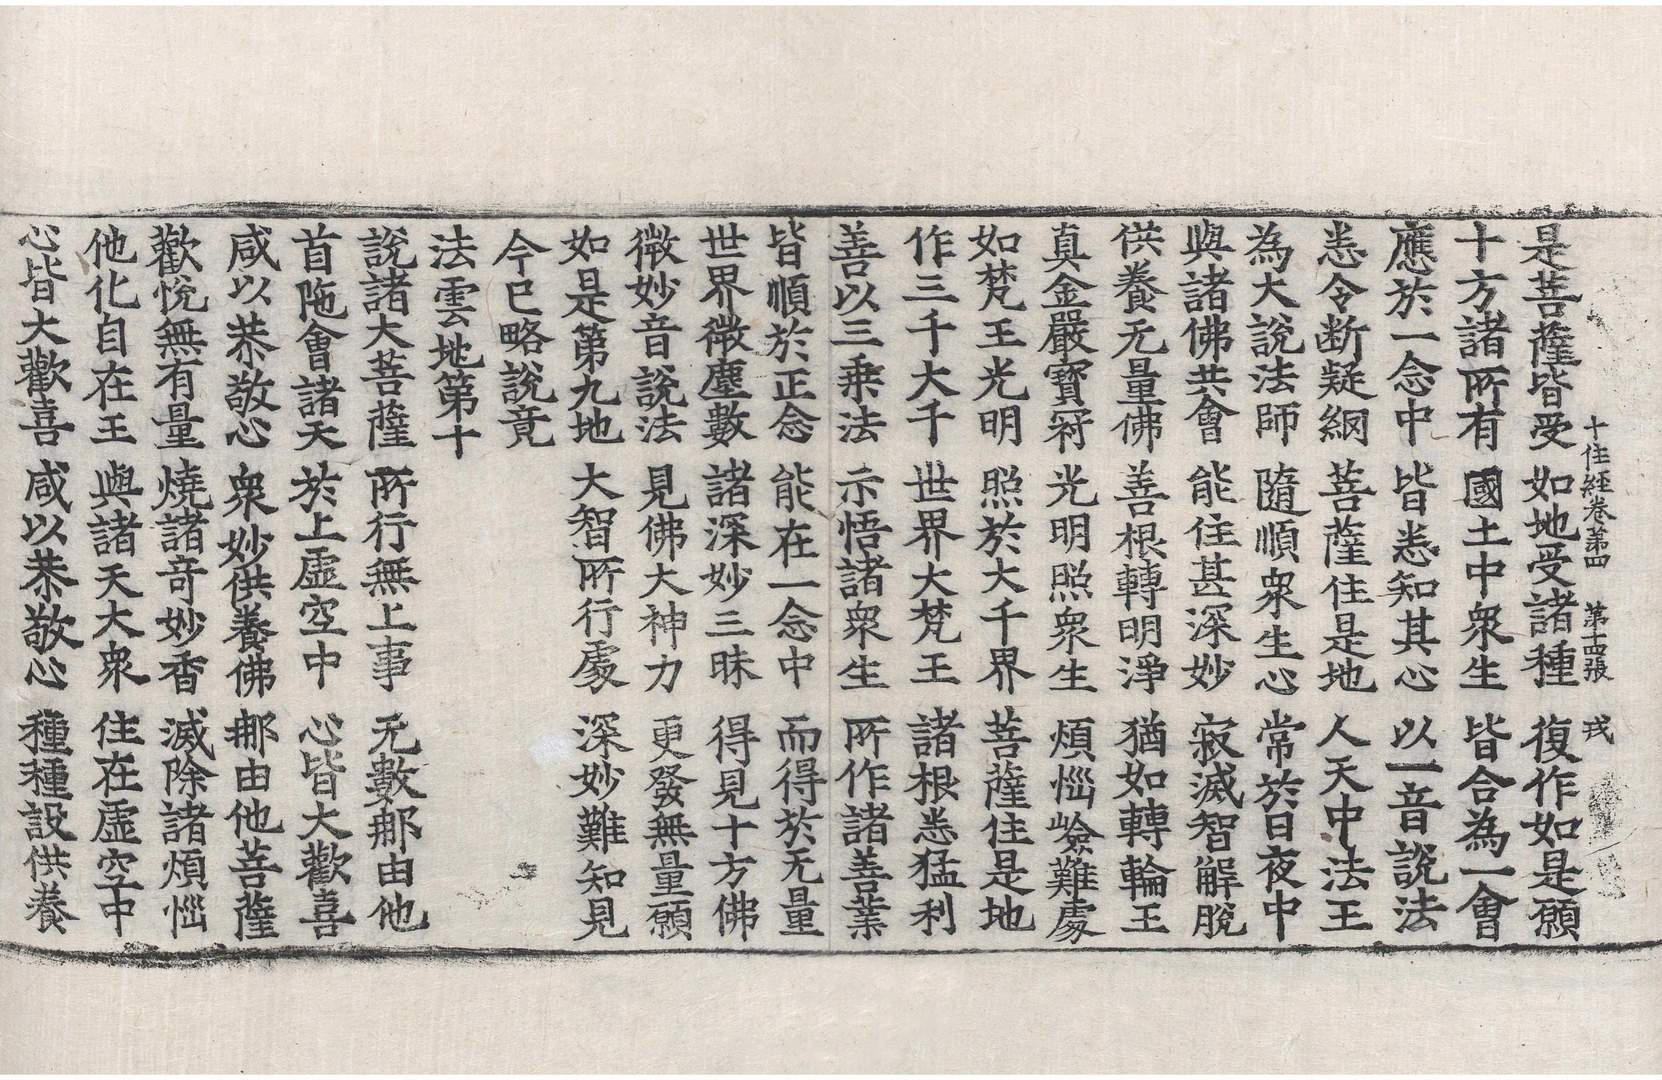 十住經卷第四 第十四張 戎
是菩薩皆受 如地受諸種 復作如是願
十方諸所有 國土中衆生 皆合為一會
應於一念中 皆悉知其心 以一音說法
悉令断疑網 菩薩住是地 人天中法王
為大說法師 隨順衆生心 常於日夜中
與諸佛共會 能住甚深妙 寂滅智解脫
供養无量佛 善根轉明淨 猶如轉輪王
真金嚴寳冠 光明照衆生 煩惱嶮難處
如梵王光明 照於大千界 菩薩住是地
作三千大千 世界大梵王 諸根悉猛利
善以三乗法 示悟諸衆生 所作諸善業
皆順於正念 能在一念中 而得於无量
世界微塵數 諸深妙三昧 得見十方佛
微妙音說法 見佛大神力 更發無量願
如是第九地 大智所行處 深妙難知見
今已略說竟
法雲地第十
說諸大菩薩 所行無上事 无數那由他
首陁會諸天 於上虛空中 心皆大歡喜
咸以恭敬心 衆妙供養佛 那由他菩薩
歡悅無有量 燒諸奇妙香 滅除諸煩惱
他化自在王 與諸天大衆 住在虛空中
心皆大歡喜 咸以恭敬心 種種設供養